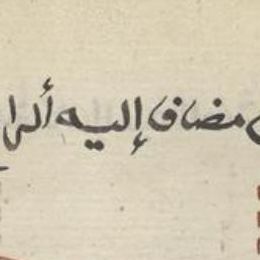 مضاف إليه ألرا